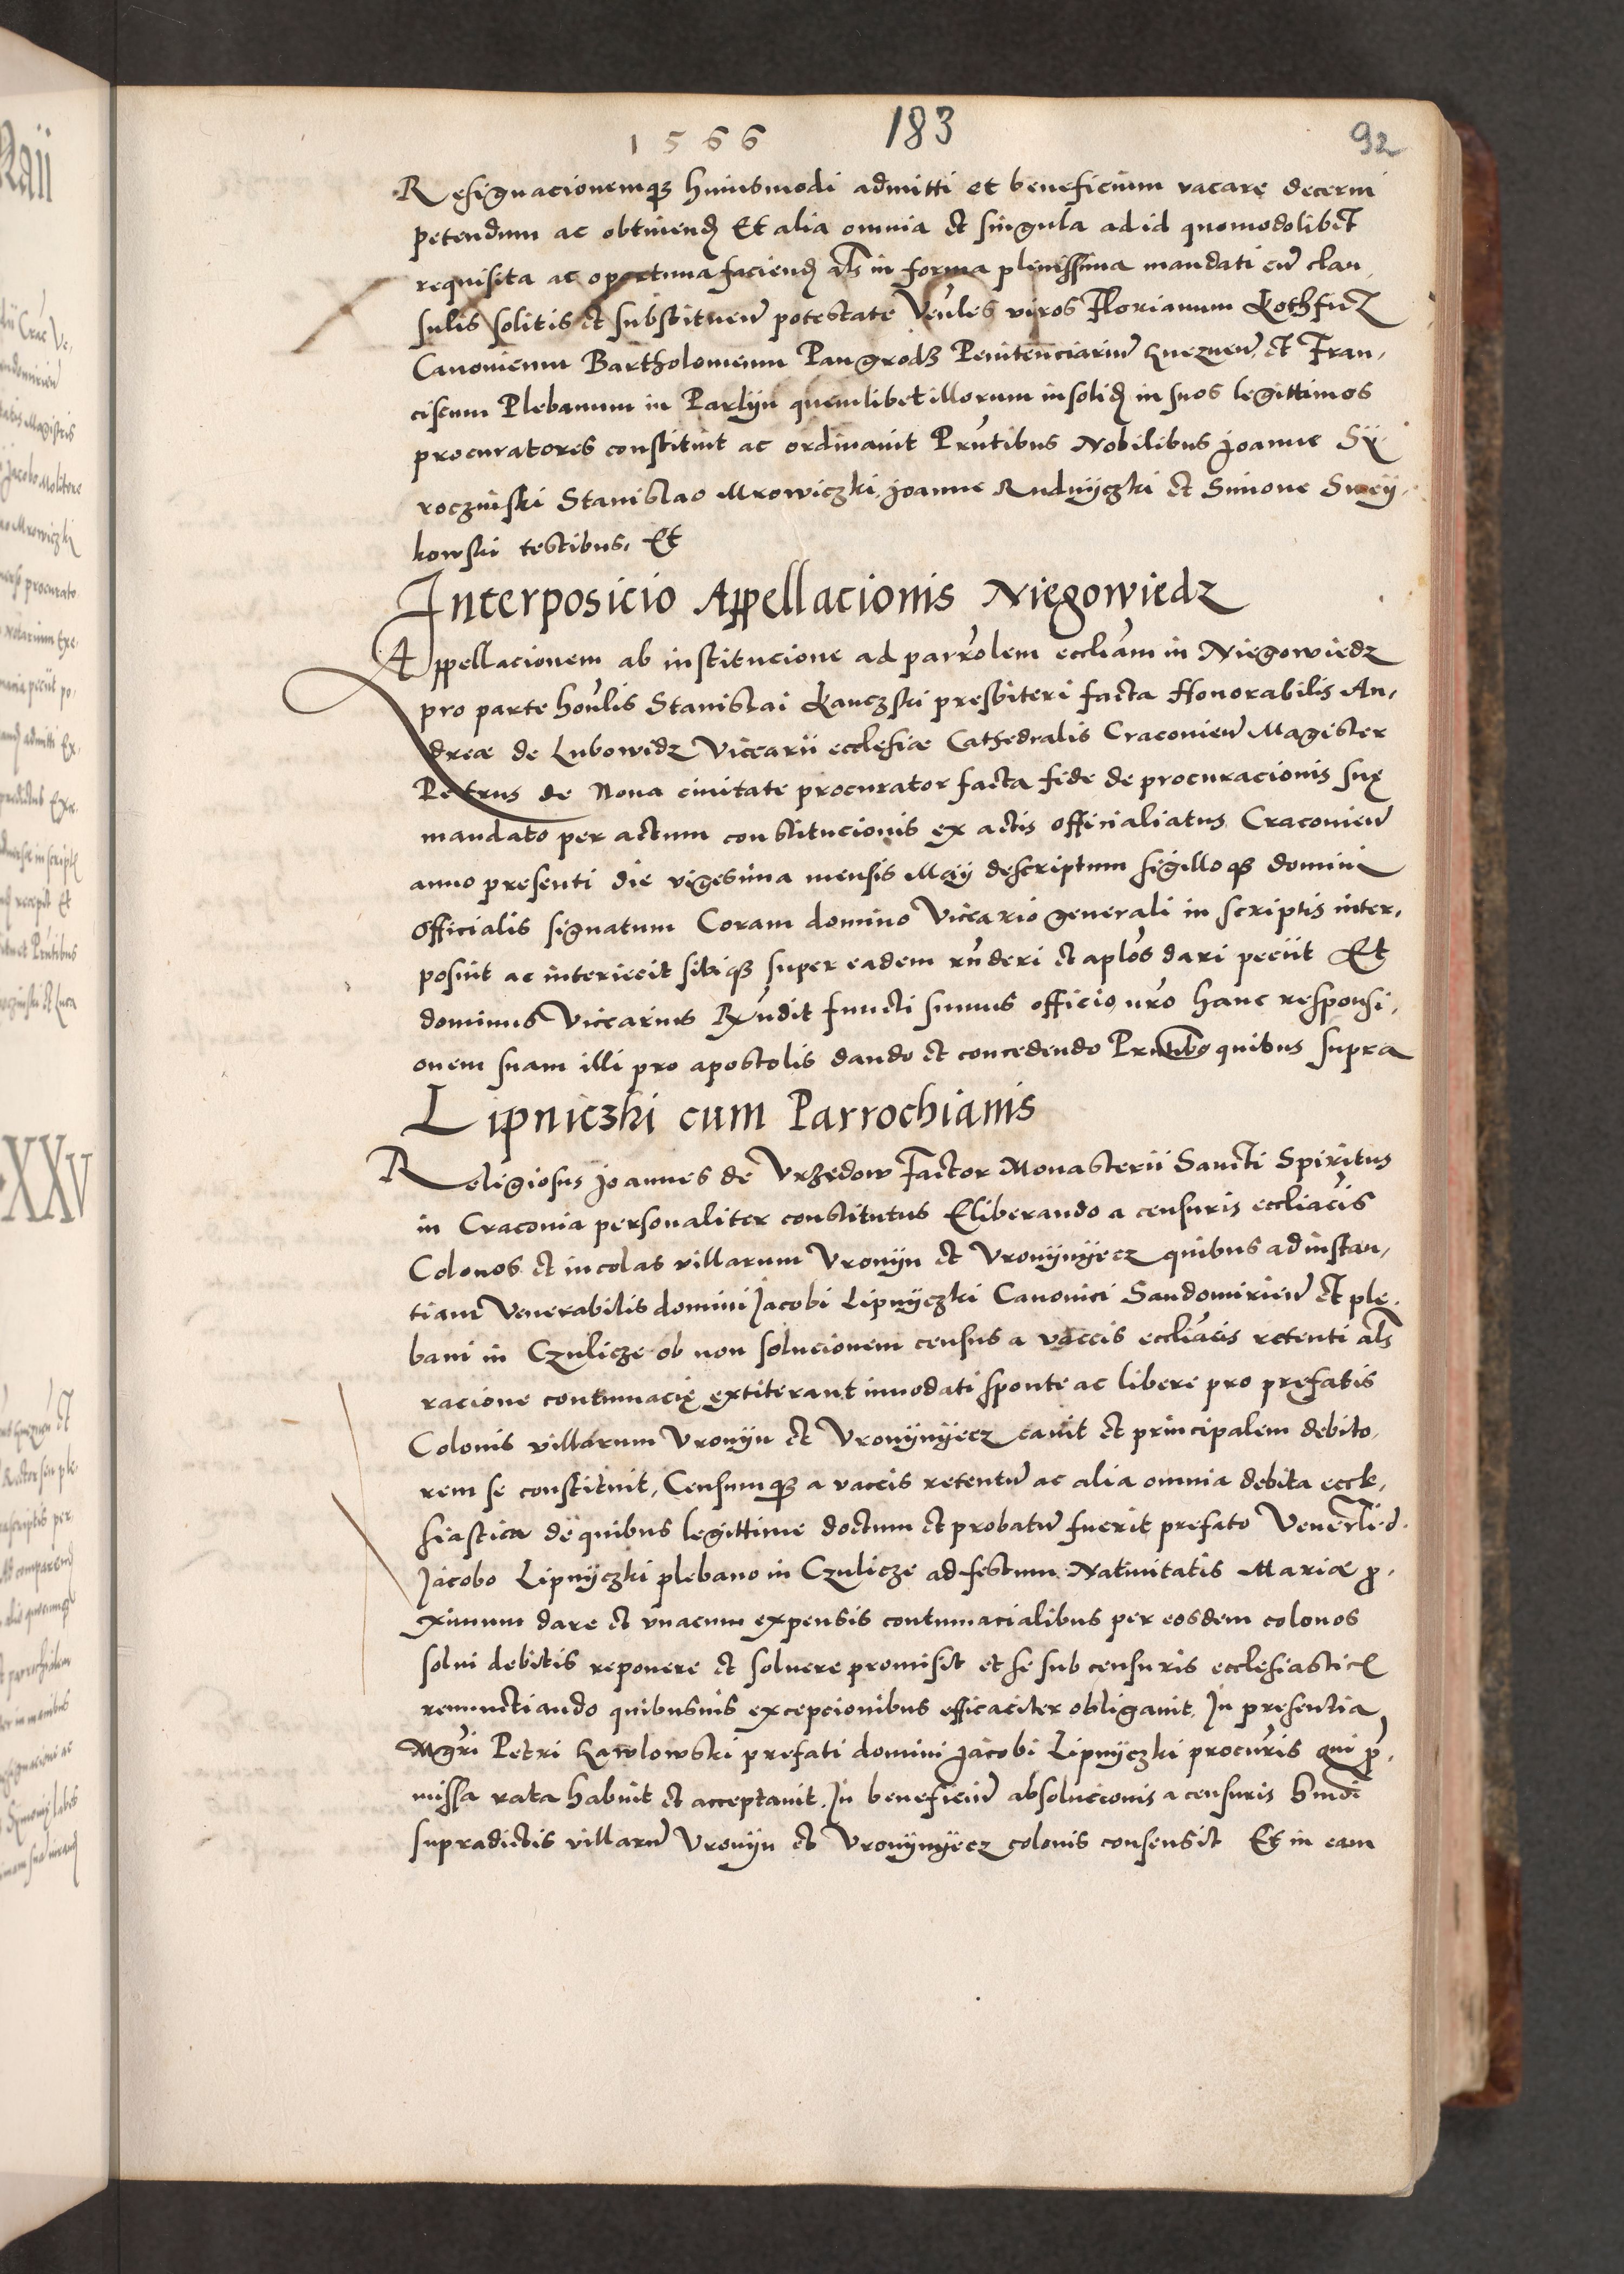 1566 183 92
Resignacionemqȝ huiusmodi admitti et beneficium vacare decerni
petendum ac obtinend Et alia omnia et singula ad id quomodolibet
requisita ac oportuna faciend als in forma plenissima mandati cū clau,
sulis solitis et substituen̄ potestate Ven̄les viros Florianum Kothficz
Canonicum Bartholomeum Pangrodz Penitenciariū Gneznen̄ et Fran,
ciscum Plebanum in Parlyn quemlibet illorum in solid in suos legittimos
procuratores constituit ac ordinauit Prn̄tibus Nobilibus Joanne Sy
roczinski Stanislao Mrowiczki, Joanne Rudnyczki et Simone Swey,
kowski testibus, Et
Interposicio Appellacionis Niegowiedz
Appellacionem ab institucione ad parrōlem eccliām in Niegowiedz
pro parte hon̄lis Stanislai Kanczski presbiteri facta Honorabilis An,
dreæ de Lubowidz Vicearii ecclesiæ Cathedralis Cracouien̄ Magister
Petrus de Noua ciuitate procurator facta fide de procuracionis suę
mandato per actum constitucionis ex actis officialiatus Cracouien̄
anno presenti die vigesima mensis Maij descriptum sigilloqȝ domini
Officialis signatum Coram domino Viceario generali in scriptis inter,
posuit ac interiecit sibiqȝ super eadem rn̄deri et aplōs dari peciit Et
dominus Vicearius Rn̄dit functi sumus officio nrō hanc responsi,
onem suam illi pro apostolis dando et concedendo Prn̄tibs quibus supra
Lipniczki cum Parrochianis
Religiosus Joannes de Vrzędow Factor Monasterii Sancti Spiritus
in Craconia personaliter constitutus Eliberando a censuris eccliācis
Colonos et incolas villarum Vronyn et Vronynyecz quibus ad instan,
tiam Venerabilis domini Jacobi Lipnyczki Canonici Sandomirien̄ et ple,
bani in Czulicze ob non solucionem census a vaccis eccliācis retenti als
racione contumacię extiterant innodati sponte ac libere pro prefatis
Colonis villarum Vronyn et Vronynyecz cauit et principalem debito,
rem se constituit, Censumqȝ a vaccis retentū ac alia omnia debita eccle,
siastica de quibus legittime doctum et probatū fuerit prefato Venerli d.
Jacobo Lipnyczki plebano in Czulicze ad festum Natiuitatis Mariæ p̄,
ximum dare et vnacum expensis contumacialibus per eosdem colonos
solui debitis reponere et soluere promisit et se sub censuris ecclesiastic
renunctiando quibusuis excepcionibus efficaciter obligauit, In presentia
Mgr̄i Petri Gawlowski prefati domini Jacobi Lipnyczki procur̄is qui p̄,
missa rata habuit et acceptauit, In beneficiū absolucionis a censuris hmōi
supradictis villarū Vronyn et Vronynyecz colonis consensit Et in eam